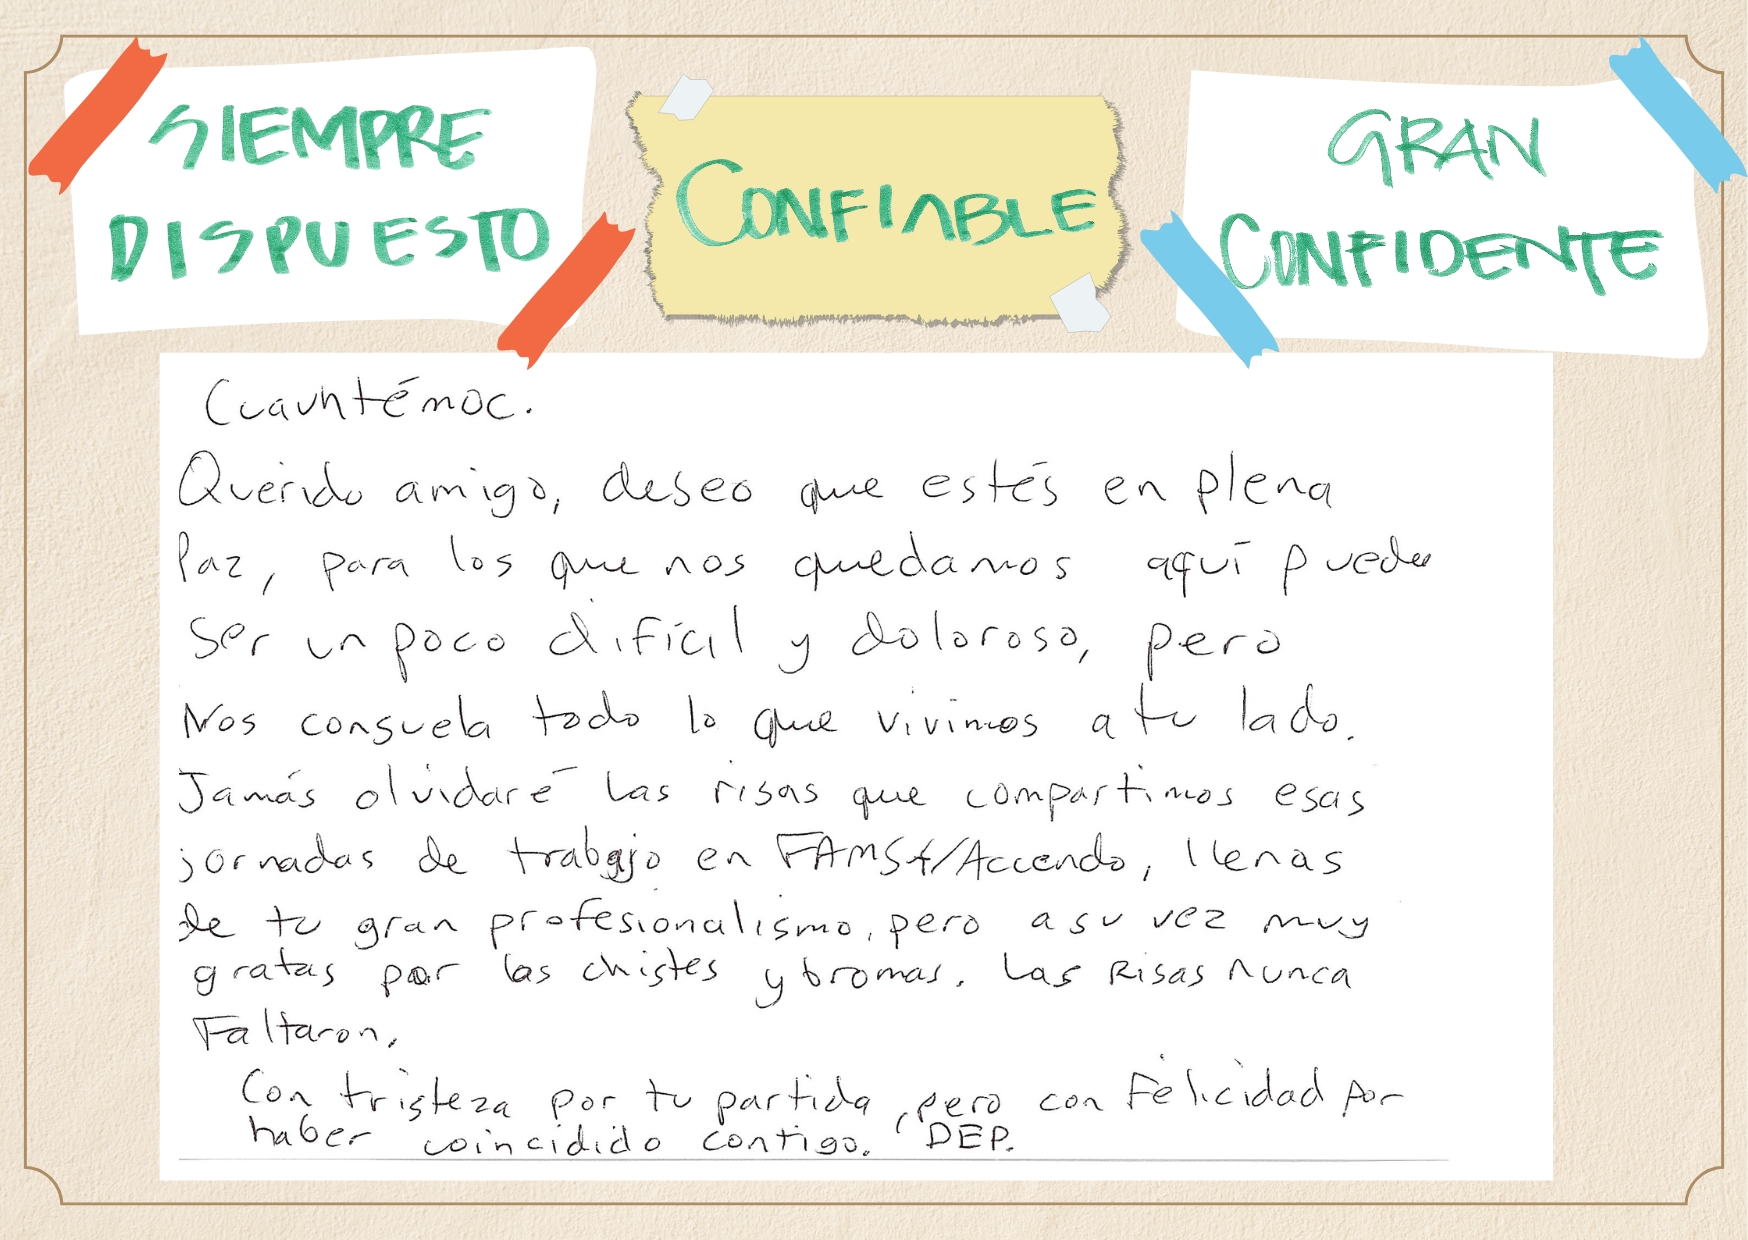 SIEMPRE
DISPUESTO
CONFIABLE
GRAN
CONFIDENTE
Cuauhtémoc.
Querido amigo, deseo que estés en plena
Paz, para los que nos quedamos aquí puede
ser un poco difícil y doloroso, pero
Nos consuela todo lo que vivimos a tu lado.
Jamás olvidaré las risas que compartimos esas
jornadas de trabajo en FAMSA/Accendo, llenas
de tu gran profesionalismo, pero a su vez muy
gratas por las chistes y bromas. Las Risas nunca
Faltaron,
Con tristeza por tu partida, pero con Felicidad por
haber coincidido contigo. DEP.